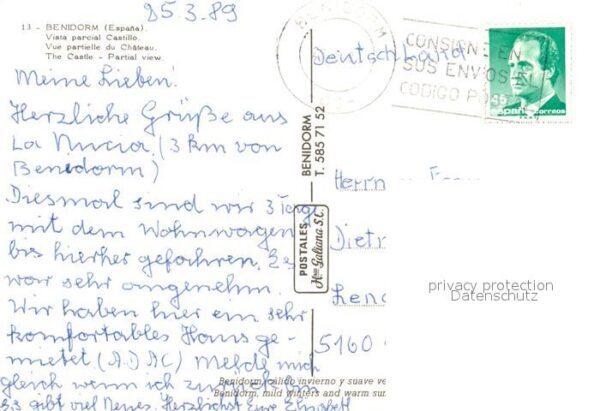 25.3.89
13 - BENIDORM (España).
Vista parcial Castillo.
Vue partielle du Château.
The Castle - Partial view.
Meine Lieben!
Herzliche Grüße aus
La Nucia (3 km von
Benidorm)
Diesmal sind wir 3 Tage
mit dem Wohnwagen
bis hierher gefahren. Es
war sehr angenehm.
Wir haben hier ein sehr
komfortables Haus ge-
mietet (ADAC) Melde mich
gleich wenn ich zurück bin
Es gibt viel Neues. Herzlichst Eure Elisabeth
Benidorm, cálido invierno y suave ve
Benidorm, mild winters and warm sum
POSTALES
Hnos Galiana S.L.
BENIDORM
T. 585 71 52
BENIDORM
CONSIGNE EN
SUS ENVIOS EL
CODIGO PO
españa correos
Deutschland
Herrn
Dietr
5160
privacy protection
Datenschutz